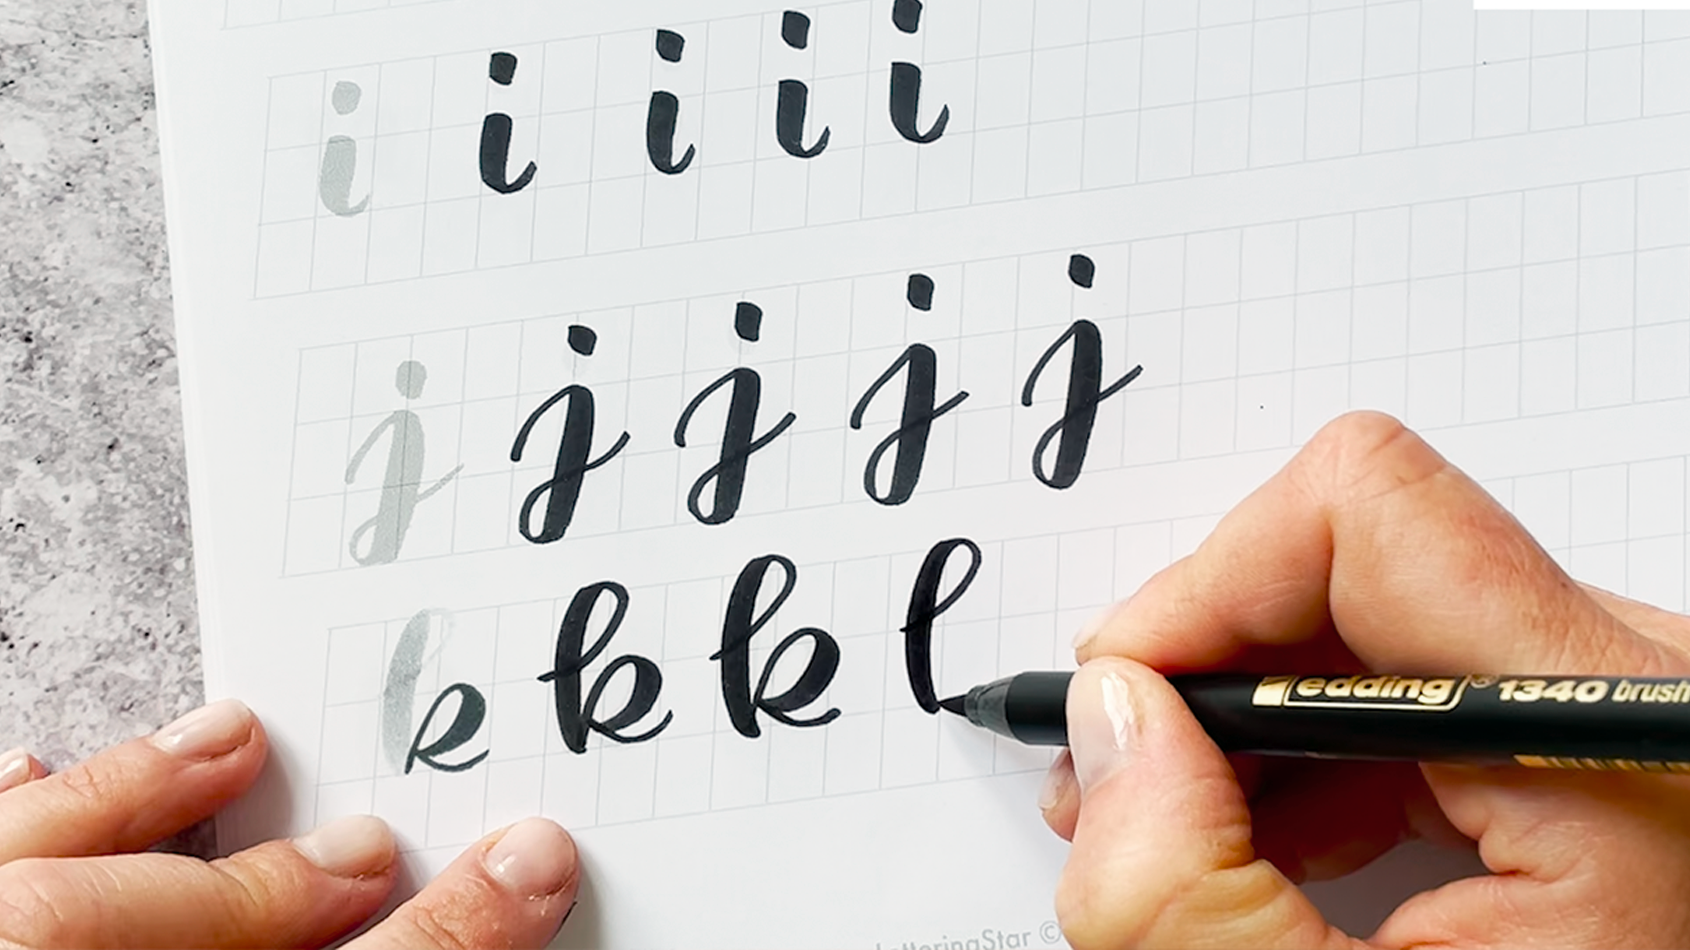 i i i i i
j j j j j
k k k l
edding® 1340 brush
LetteringStar ©